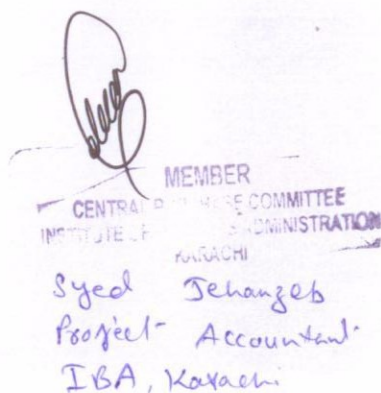 MEMBER
CENTRAL PURCHASE COMMITTEE
INSTITUTE OF ADMINISTRATION
KARACHI
Syed Jehanzeb
Project Accountant
IBA, Karachi